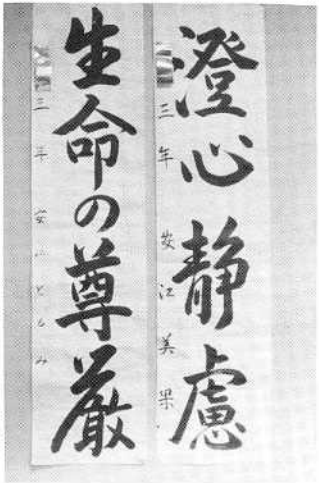 澄心静慮
三年 安江美果
生命の尊厳
三年 安江ともみ